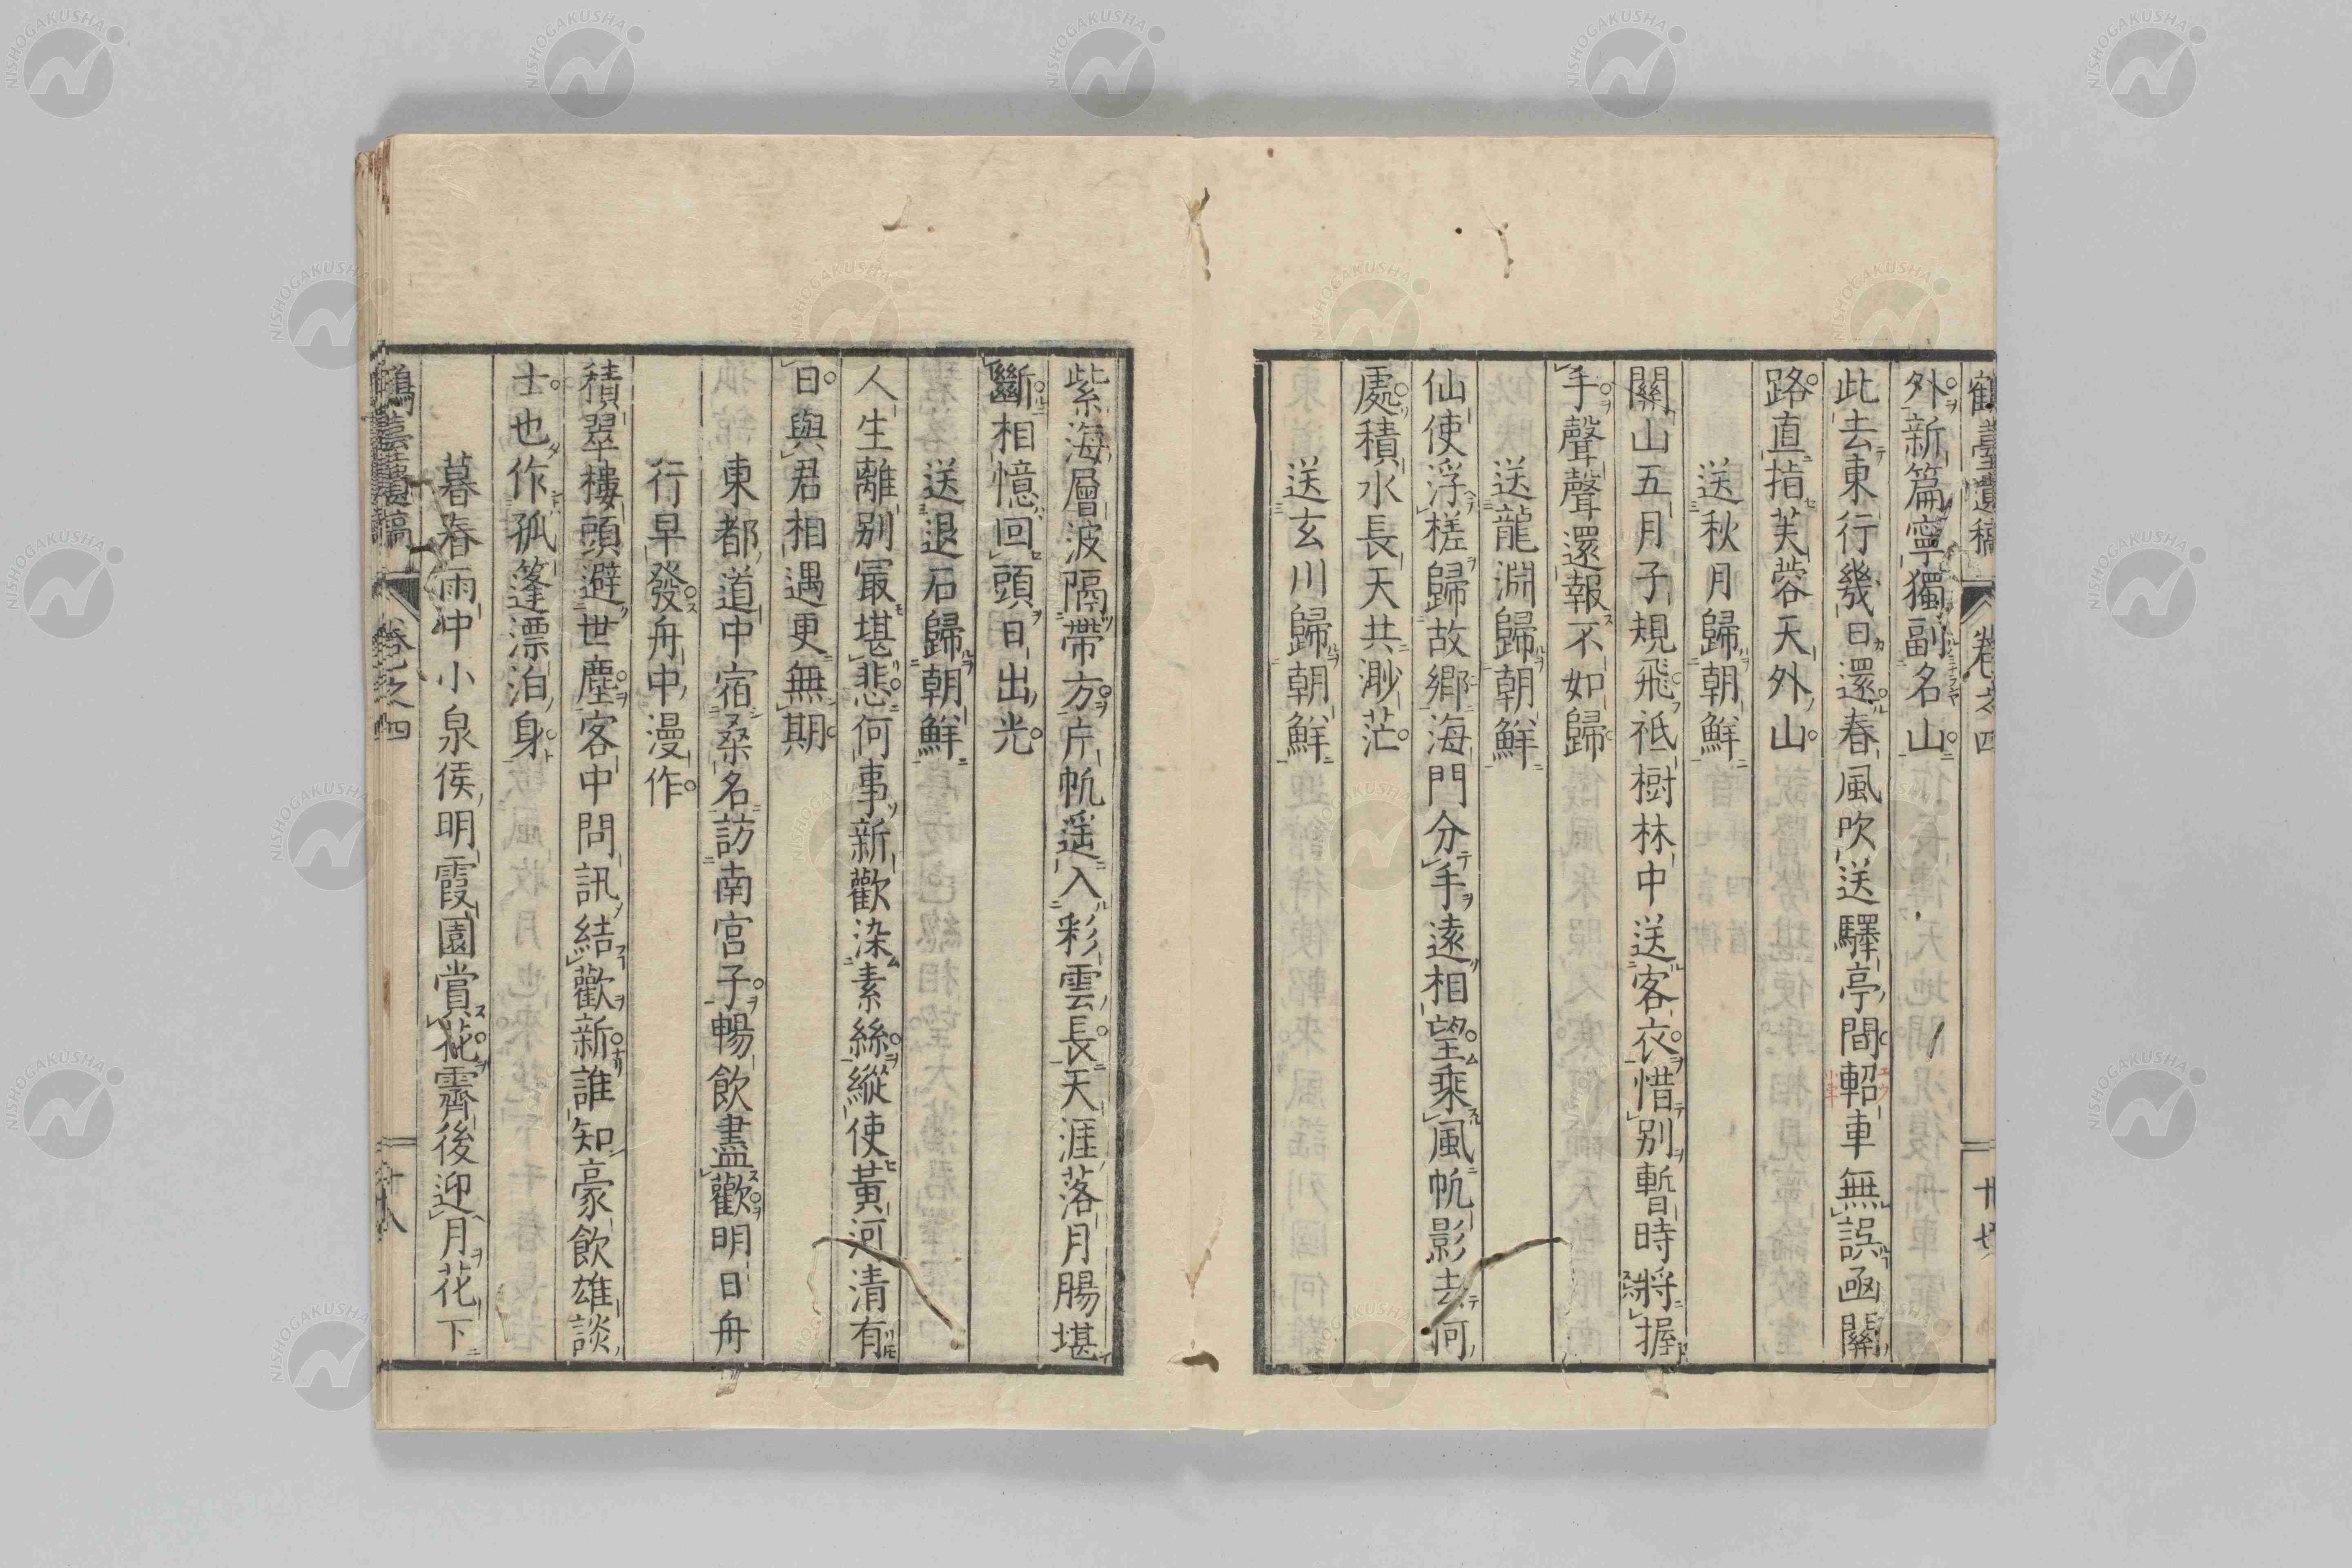 鶴臺遺稿 卷之四
外新篇寧獨副名山
此去東行幾日還春風吹送驛亭間軺車無誤凾關
路直指芙蓉天外山
送秋月歸朝鮮
關山五月子規飛祗樹林中送客衣惜別暫時將握
手聲聲還報不如歸
送龍淵歸朝鮮
仙使浮槎歸故鄉海門分手遠相望乘風帆影去何
處積水長天共渺茫
送玄川歸朝鮮
紫海層波隔帶方片帆遥入彩雲長天涯落月腸堪
斷相憶回頭日出光
送退石歸朝鮮
人生離別㝡堪悲何事新歡染素絲縱使黃河清有
日與君相遇更無期
東都道中宿桑名訪南宮子暢飲盡歡明日舟
行早發舟中漫作
積翠樓頭避世塵客中問訊結歡新誰知豪飲雄談
士也作孤篷漂泊身
暮春雨中小泉侯明霞園賞花霽後迎月花下
鶴臺遺稿 卷之四 十八
NISHOGAKUSHA